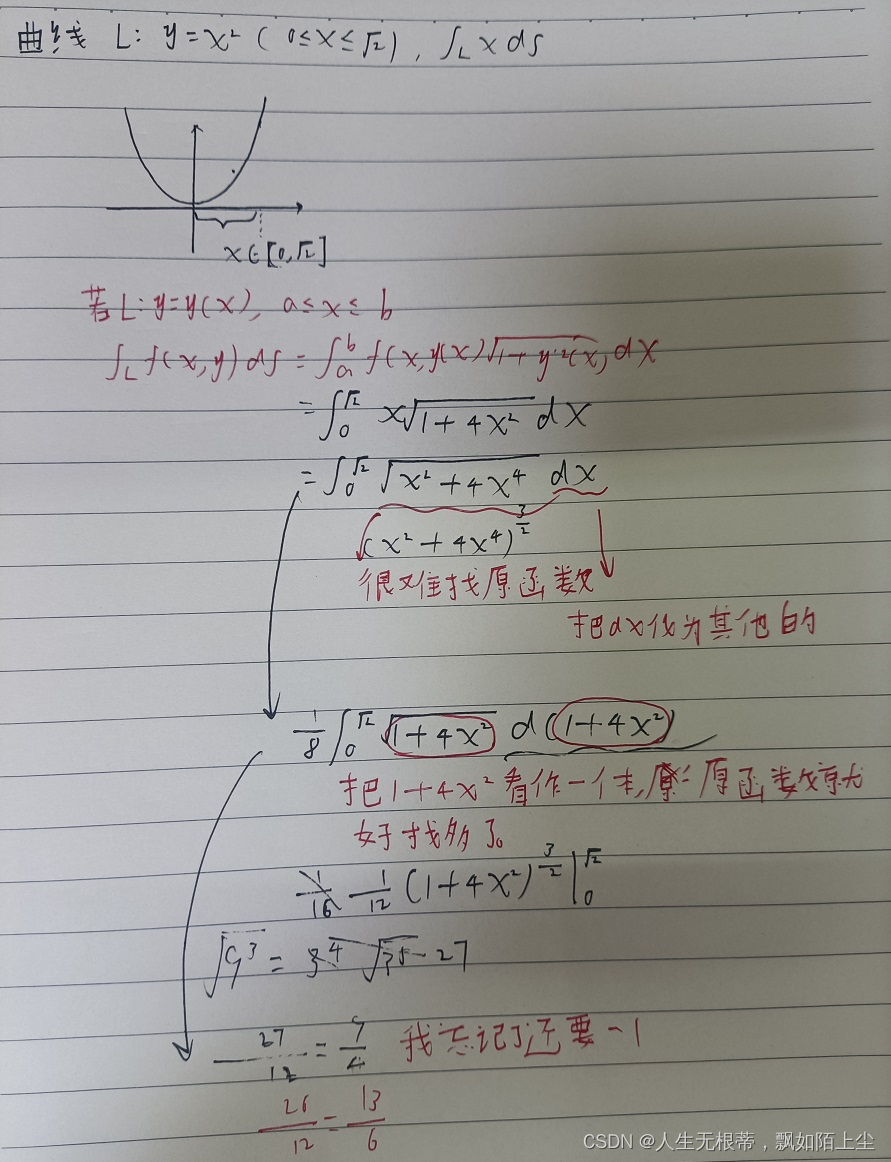 曲线 L: y=x² ( 0≤x≤√2 ), ∫_L x ds
x∈[0,√2]
若L:y=y(x), a≤x≤b
∫_L f(x,y)ds = ∫_a^b f(x,y(x))√(1+y'²(x)) dx
= ∫_0^√2 x√(1+4x²) dx
= ∫_0^√2 √(x²+4x⁴) dx
(x²+4x⁴)^(3/2)
很难找原函数
把dx化为其他的
1/8 ∫_0^√2 √(1+4x²) d(1+4x²)
把1+4x²看作一个 原函数就
好找多了。
1/16 1/12 (1+4x²)^(3/2) |_0^√2
√9³ = 3⁴ 27
27/12 = 9/4 我忘记了还要-1
26/12 = 13/6
CSDN @人生无根蒂，飘如陌上尘